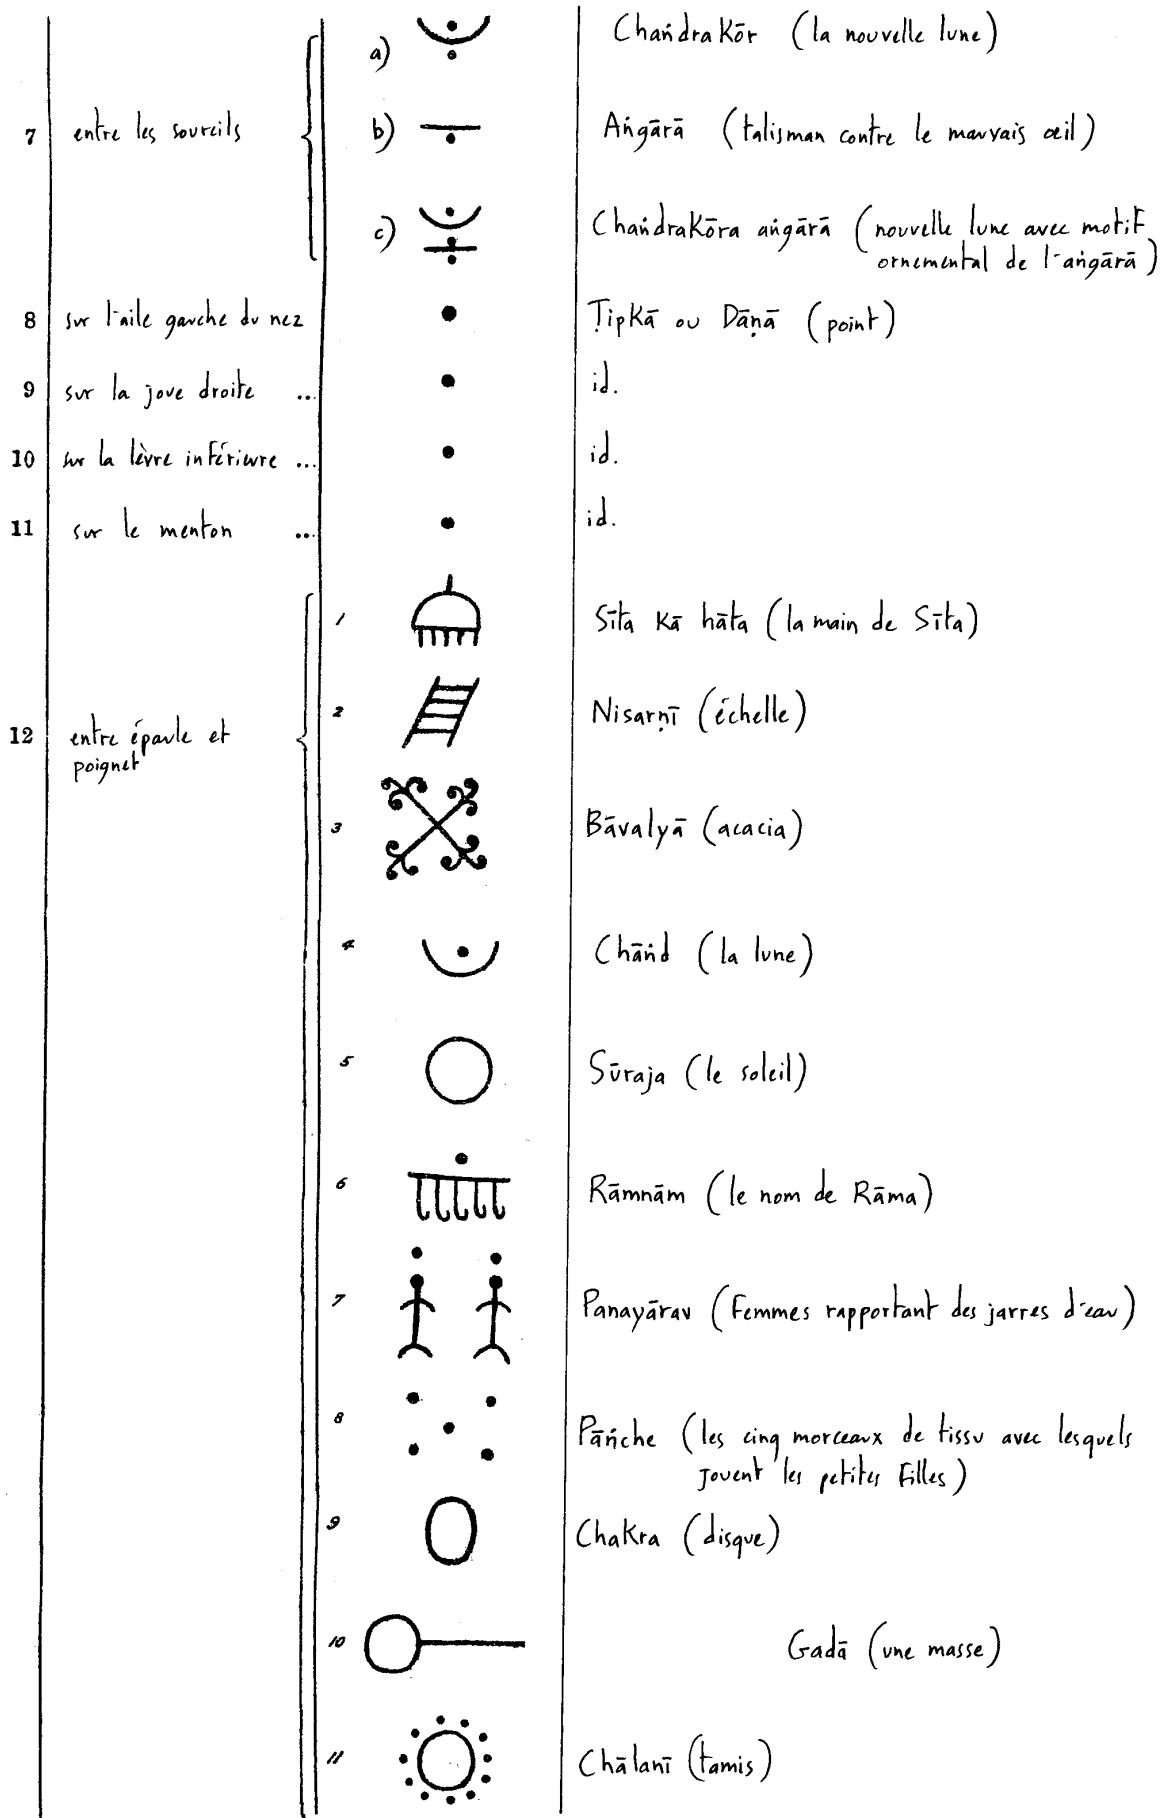 a) Chańdrakōr (la nouvelle lune)
7 entre les sourcils b) Aṅgārā (talisman contre le mauvais œil)
c) Chańdrakōra aṅgārā (nouvelle lune avec motif
ornemental de l'aṅgārā)
8 sur l'aile gauche du nez Ṭipkā ou Dāṇā (point)
9 sur la joue droite ... id.
10 sur la lèvre inférieure ... id.
11 sur le menton ... id.
1 Sīta kā hāta (la main de Sīta)
2 Nisarṇī (échelle)
12 entre épaule et
poignet
3 Bāvalyā (acacia)
4 Chāńd (la lune)
5 Sūraja (le soleil)
6 Rāmnām (le nom de Rāma)
7 Panayārav (femmes rapportant des jarres d'eau)
8 Pāńche (les cinq morceaux de tissu avec lesquels
jouent les petites filles)
9 Chakra (disque)
10 Gadā (une masse)
11 Chālanī (tamis)